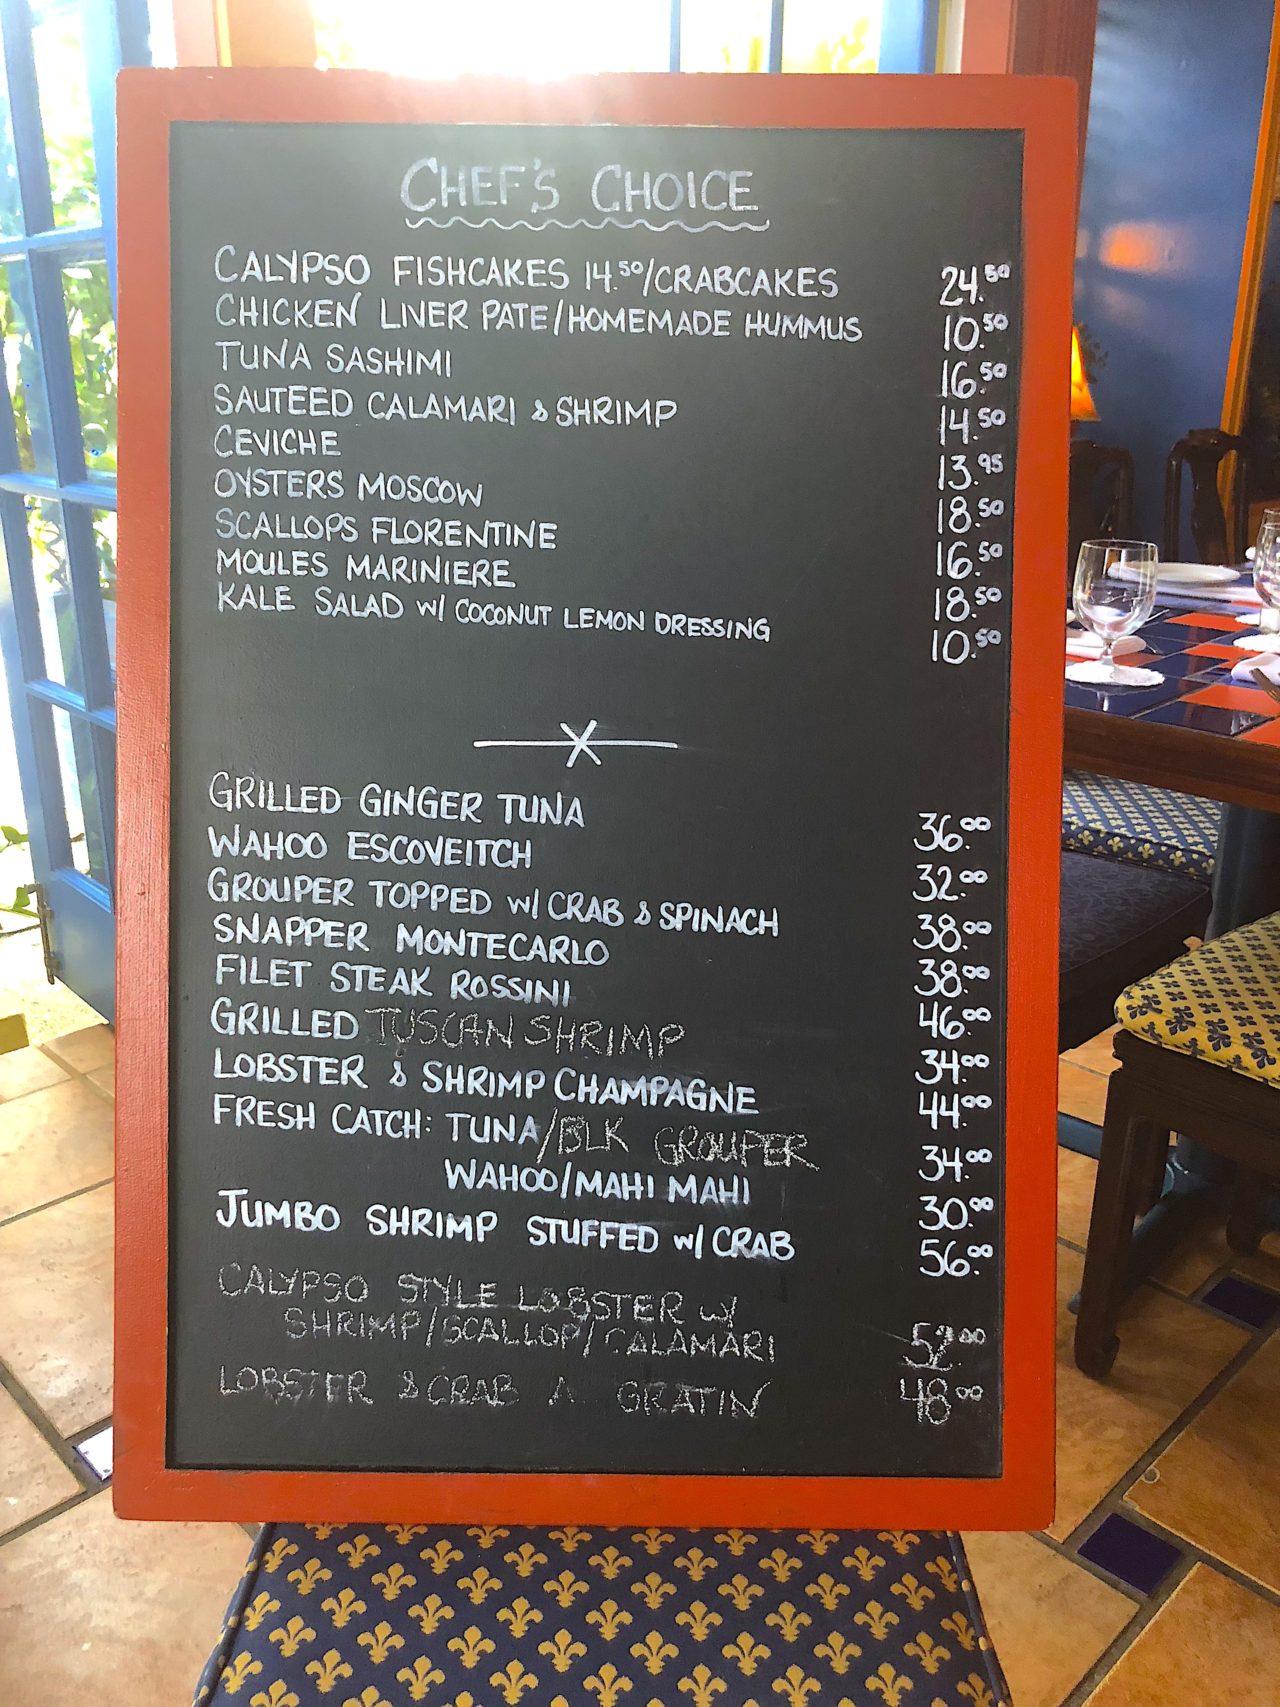 CHEF'S CHOICE
CALYPSO FISHCAKES 14.50/CRABCAKES 24.50
CHICKEN LIVER PATE/HOMEMADE HUMMUS 10.50
TUNA SASHIMI 16.50
SAUTEED CALAMARI & SHRIMP 14.50
CEVICHE 13.95
OYSTERS MOSCOW 18.50
SCALLOPS FLORENTINE 16.50
MOULES MARINIERE 18.50
KALE SALAD w/ COCONUT LEMON DRESSING 10.50
GRILLED GINGER TUNA 36.00
WAHOO ESCOVEITCH 32.00
GROUPER TOPPED w/ CRAB & SPINACH 38.00
SNAPPER MONTECARLO 38.00
FILET STEAK ROSSINI 46.00
GRILLED TUSCAN SHRIMP 34.00
LOBSTER & SHRIMP CHAMPAGNE 44.00
FRESH CATCH: TUNA/BLK GROUPER 34.00
WAHOO/MAHI MAHI 30.00
JUMBO SHRIMP STUFFED w/ CRAB 56.00
CALYPSO STYLE LOBSTER w/
SHRIMP/SCALLOP/CALAMARI 52.00
LOBSTER & CRAB A GRATIN 48.00